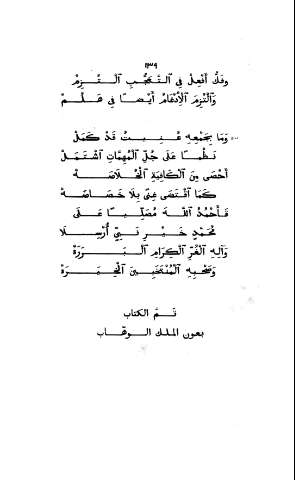 ١٣٩
وفكُّ أفعل في التعجّب التزم
والتزم الإدغام أيضًا في هلمّ
وما بجمعه عنيت قد كمل
نظمًا على جلّ المهمّات اشتمل
أحصى من الكافية الخلاصة
كما اقتضى غنى بلا خصاصة
فأحمد الله مصلّيًا على
محمّد خير نبيّ أرسلا
وآله الغرّ الكرام البررة
وصحبه المنتخبين الخيرة
تمّ الكتاب
بعون الملك الوهّاب